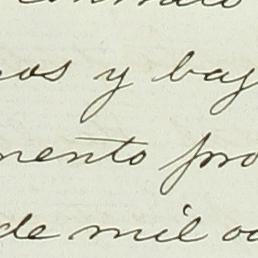 os y baj
mento pro
de mil oc